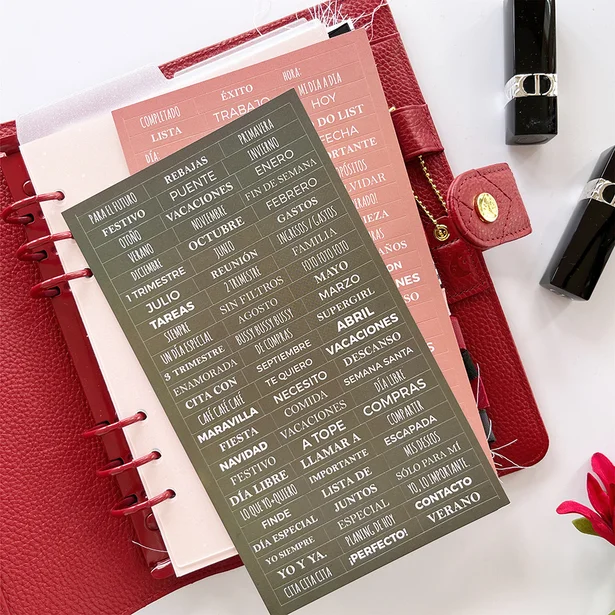 COMPLETADO ÉXITO HORA:
LISTA TRABAJO MI DIA A DIA
DÍA: HOY
DO LIST
FECHA
PARA EL FUTURO REBAJAS PRIMAVERA
FESTIVO PUENTE INVIERNO
OTOÑO VACACIONES ENERO
VERANO NOVIEMBRE FIN DE SEMANA
DICIEMBRE OCTUBRE FEBRERO
1 TRIMESTRE JUNIO GASTOS
JULIO REUNIÓN INGRESOS / GASTOS
TAREAS 2 TRIMESTRE FAMILIA
SIEMPRE SIN FILTROS FOTO FOTO FOTO
UN DÍA ESPECIAL AGOSTO MAYO
3 TRIMESTRE BUSSY BUSSY BUSSY MARZO
ENAMORADA DE COMPRAS SUPERGIRL
CITA CON SEPTIEMBRE ABRIL
CAFÉ CAFÉ CAFÉ TE QUIERO VACACIONES
MARAVILLA NECESITO DESCANSO
FIESTA COMIDA SEMANA SANTA
NAVIDAD VACACIONES DÍA LIBRE
FESTIVO A TOPE COMPRAS
DÍA LIBRE LLAMAR A COMPARTIR
LO QUE YO QUIERO IMPORTANTE ESCAPADA
FINDE LISTA DE MIS DESEOS
DÍA ESPECIAL JUNTOS SÓLO PARA MÍ
YO SIEMPRE ESPECIAL YO, LO IMPORTANTE
YO Y YA. PLANING DE HOY CONTACTO
CITA CITA CITA ¡PERFECTO! VERANO